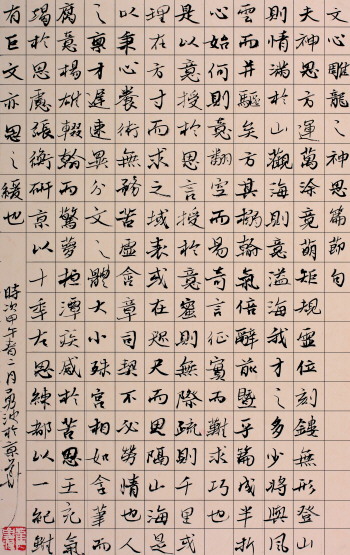 文心雕龍之神思篇節句
夫神思方運萬塗竟萌矩規虛位刻鏤無形登山
則情滿於山觀海則意溢海我才之多少將與風
雲而並驅矣方其搦翰氣倍辭前暨乎篇成半折
心始何則意翻空而易奇言征實而難求巧也
是以意授於思言授於意密則無際疏則千里或
理在方寸而求之域表或在咫尺而思隔山海是
以秉心養術無務苦慮含章司契不必勞情也人
之稟才遲速異分文之體大小殊功相如含筆而
腐意楊雄輟翰而驚夢桓譚疾感於苦思王充氣
竭於思慮張衡研京以十年左思練都以一紀雖
有巨文亦思之緩也
時次甲午春二月勇池於京華